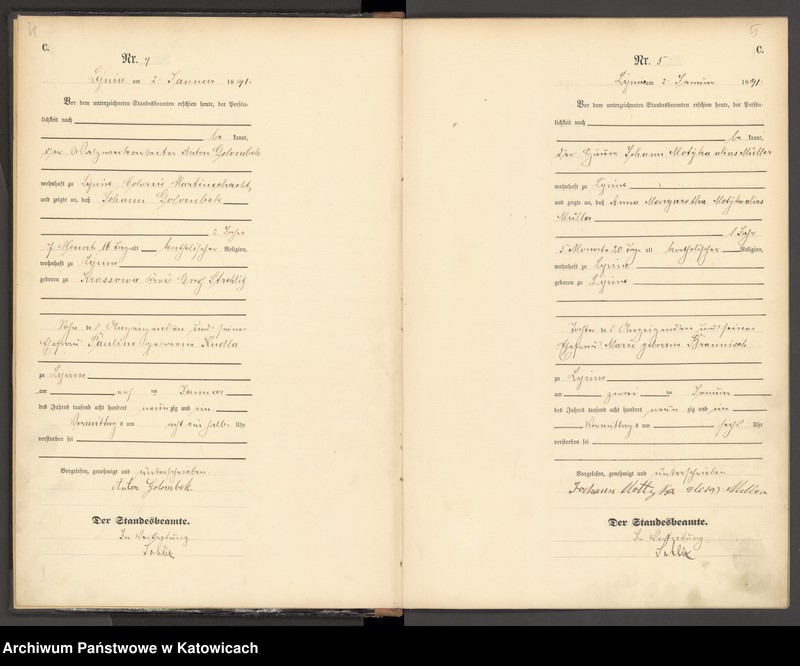 C.
Nr. 4
Lipine am 2 Januar 1891.
Vor dem unterzeichneten Standesbeamten erschien heute, der Persön-
lichkeit nach
be kannt,
der Walzwerkarbeiter Anton Golombek
wohnhaft zu Lipine Colonie Martinschacht,
und zeigte an, daß Johann Golombek
2 Jahre
7 Monate 16 Tage alt katholischer Religion,
wohnhaft zu Lipine
geboren zu Krassowa Kreis Groß Strehlitz
Sohn des Anzeigenden und seiner
Ehefrau Pauline geborene Kudla
zu Lipine
am ten Januar
des Jahres tausend acht hundert neun zig und ein
Vormittags um acht ein halb Uhr
verstorben sei
Vorgelesen, genehmigt und unterschrieben
Anton Golombek.
Der Standesbeamte.
In Vertretung
5
C.
Nr. 5
Lipine am 2 Januar 1891.
Vor dem unterzeichneten Standesbeamten erschien heute, der Persön-
lichkeit nach
be kannt,
der Häuer Johann Motyka alias Müller
wohnhaft zu Lipine
und zeigte an, daß Anna Margaretha Motyka alias
Müller
1 Jahr
5 Monate 20 Tage alt katholischer Religion,
wohnhaft zu Lipine
geboren zu Lipine
Tochter des Anzeigenden und seiner
Ehefrau Marie geborene
zu Lipine
am zwei ten Januar
des Jahres tausend acht hundert neun zig und ein
Vormittags um sechs Uhr
verstorben sei
Vorgelesen, genehmigt und unterschrieben
Johann Mottyka
Der Standesbeamte.
In Vertretung
Archiwum Państwowe w Katowicach